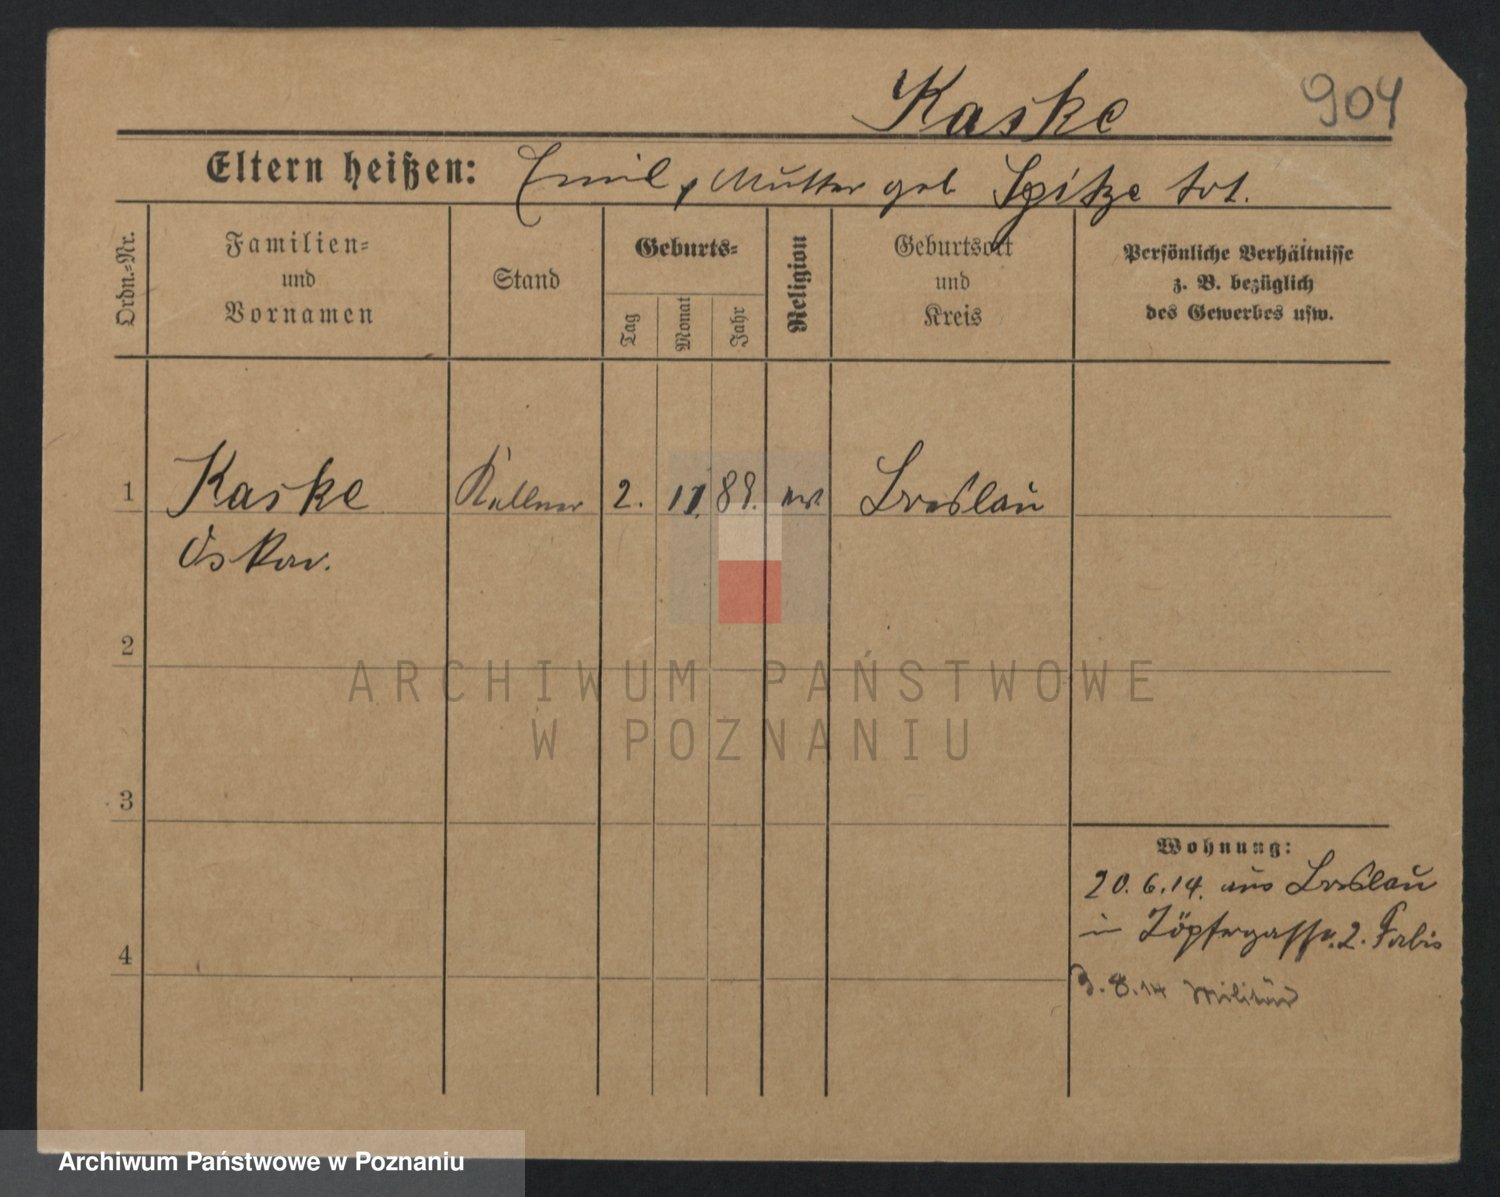 904
Kaske
Eltern heißen: Emil, Mutter geb Spitze tot.
Ordn.=Nr.
Familien=
und
Vornamen
Stand
Geburts=
Tag
Monat
Jahr
Religion
Geburtsort
und
Kreis
Persönliche Verhältnisse
z. B. bezüglich
des Gewerbes usw.
1 Kaske Kellner 2. 11. 89. ev. Breslau
Oskar.
2
3
4
Wohnung:
20.6.14. aus Breslau
in Töpfergasse. 2.
3.8.14 Militär
ARCHIWUM PAŃSTWOWE
W POZNANIU
Archiwum Państwowe w Poznaniu